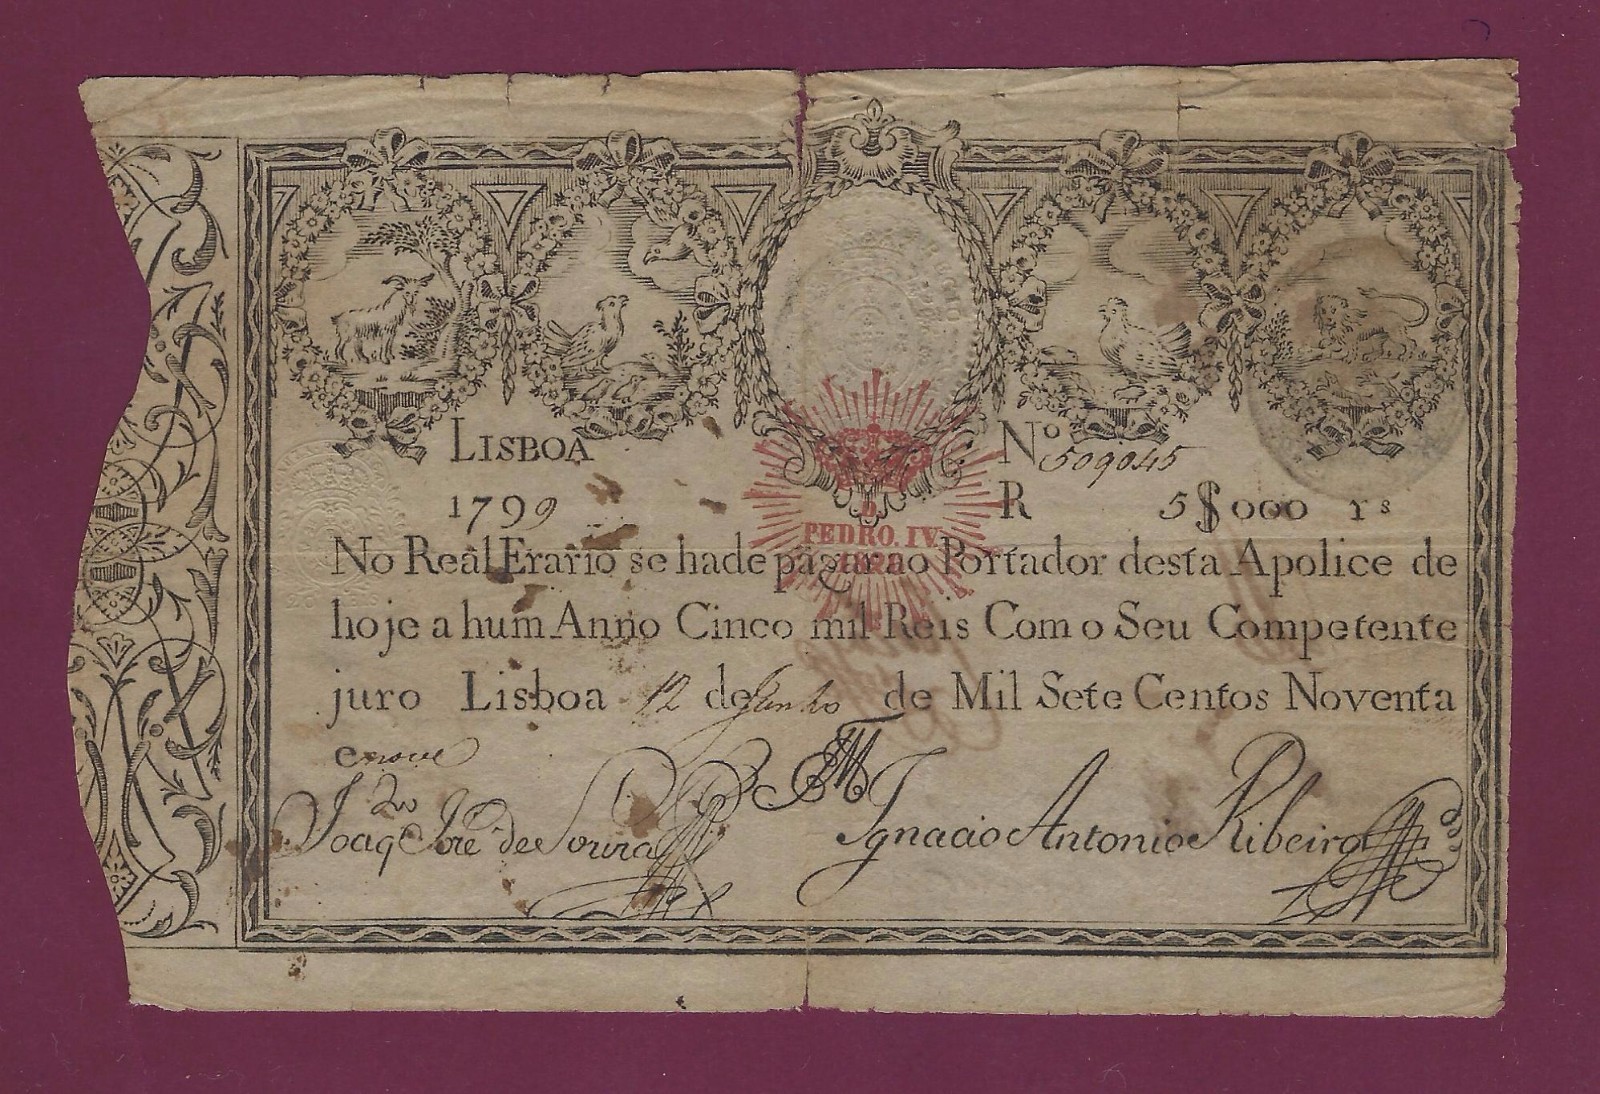 LISBOA
Nº 509045
1799
R 5$000 rs
D.
PEDRO. IV.
No Real Erario se hade pagar ao Portador desta Apolice de
hoje a hum Anno Cinco mil Reis Com o Seu Competente
juro Lisboa 12 de Junho de Mil Sete Centos Noventa
e nove
Joaq Jozé de Souza
Ignacio Antonio Ribeiro